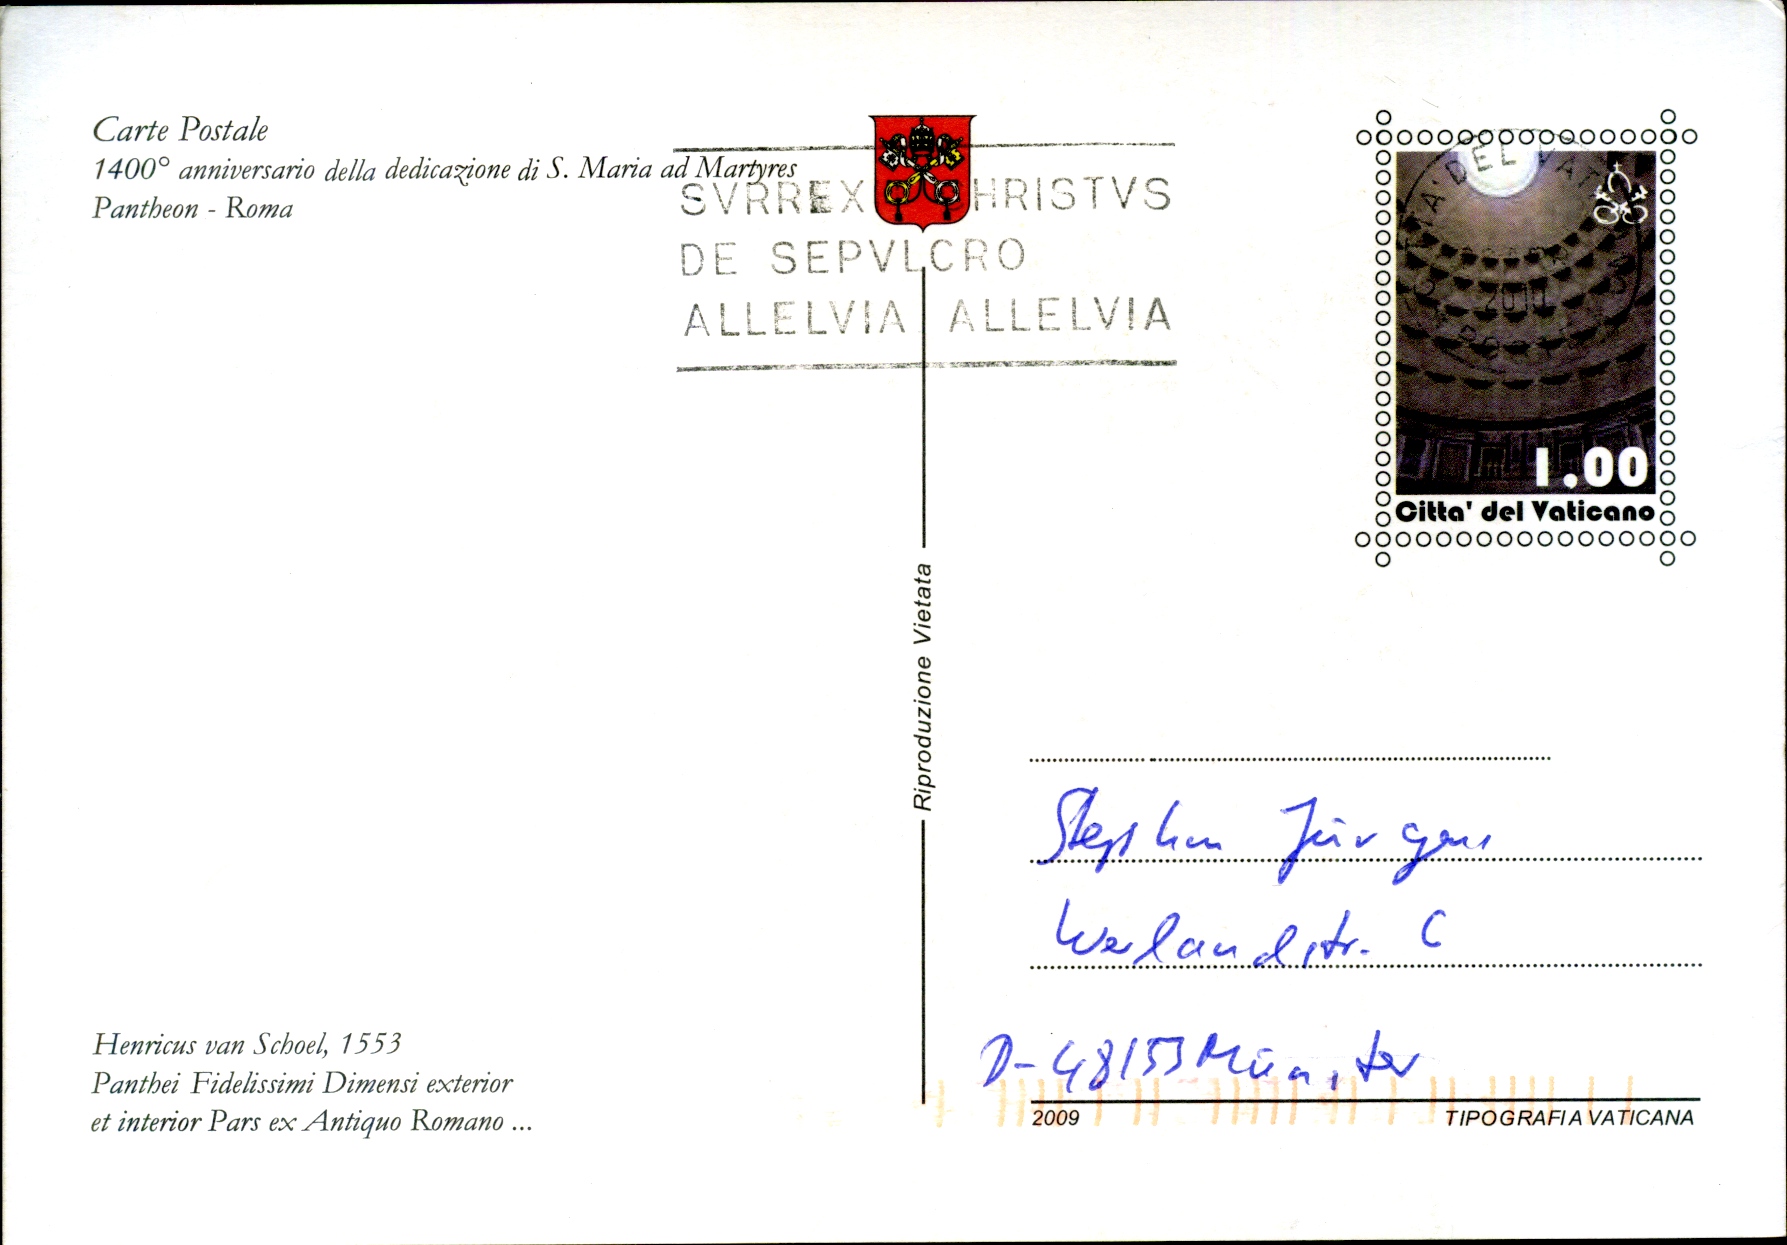 Carte Postale
1400° anniversario della dedicazione di S. Maria ad Martyres
Pantheon - Roma
SVRREX HRISTVS
DE SEPVLCRO
ALLELVIA ALLELVIA
DEL VAT
2010
1.00
Citta' del Vaticano
Riproduzione Vietata
Stephan Jürgens
Werlandstr. 6
D-48153 Münster
Henricus van Schoel, 1553
Panthei Fidelissimi Dimensi exterior
et interior Pars ex Antiquo Romano ...
2009
TIPOGRAFIA VATICANA